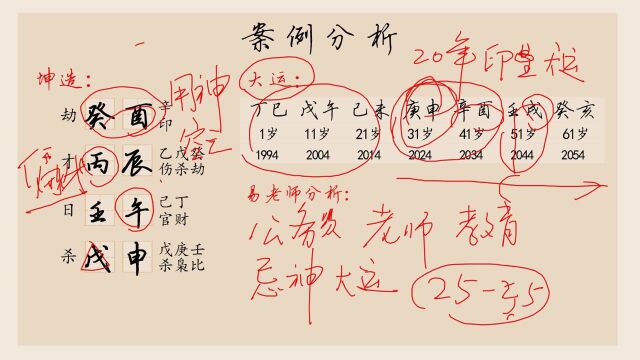 案例分析
坤造：
劫 癸 酉 辛 印
才 丙 辰 乙戊癸 伤杀劫
日 壬 午 己丁 官财
杀 戊 申 戊庚壬 杀枭比
用神
大运：
20年印星
丁巳 戊午 己未 庚申 辛酉 壬戌 癸亥
1岁 11岁 21岁 31岁 41岁 51岁 61岁
1994 2004 2014 2024 2034 2044 2054
易老师分析：
公务员 老师 教育
忌神大运